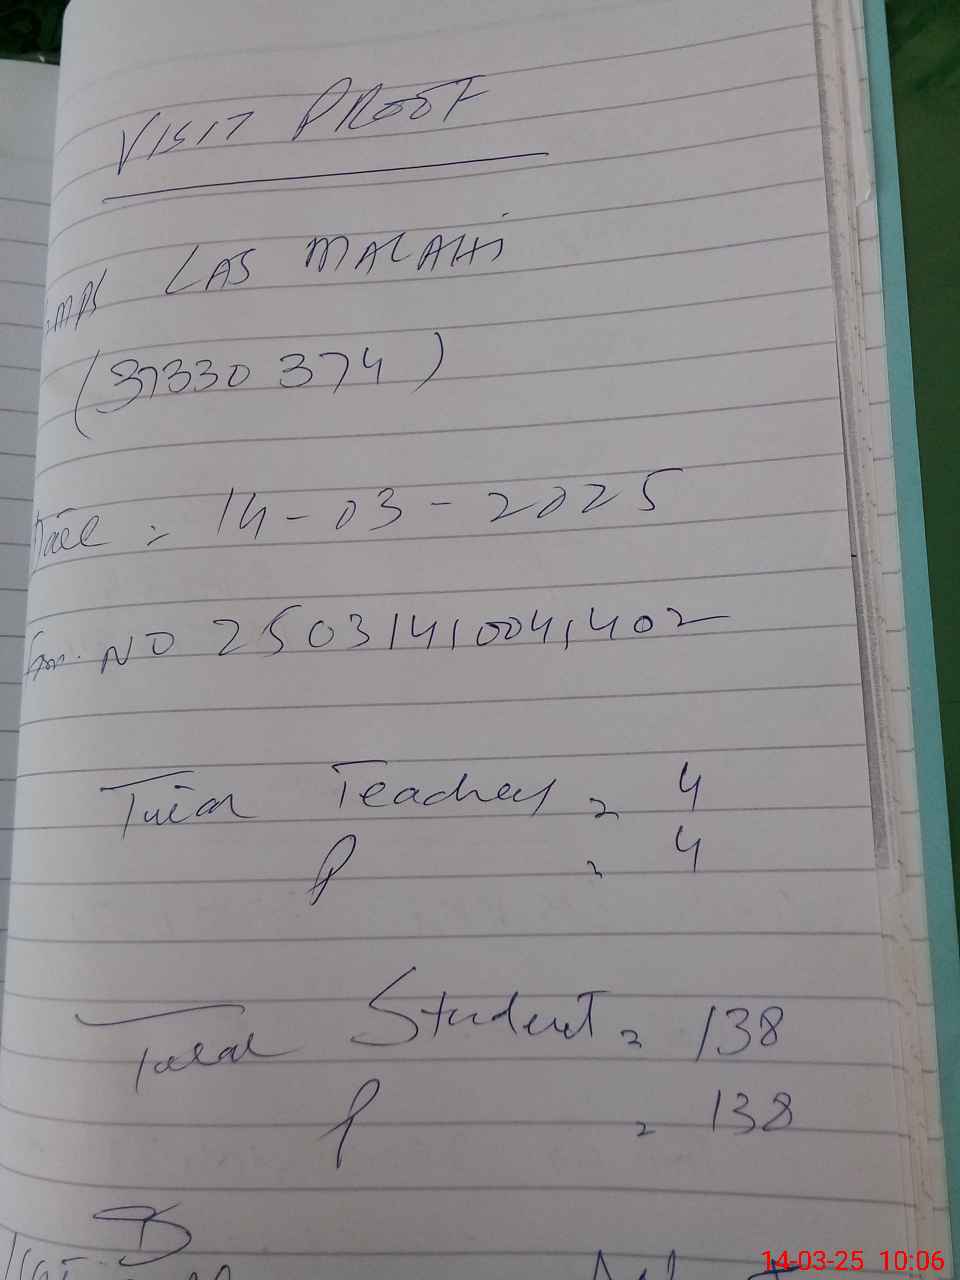 VISIT PROOF
GMPS LAS MALAHi
(37330 374)
Date = 14-03-2025
NO 25031410041402
Total Teachers = 4
P = 4
Total Student = 138
P = 138
14-03-25 10:06